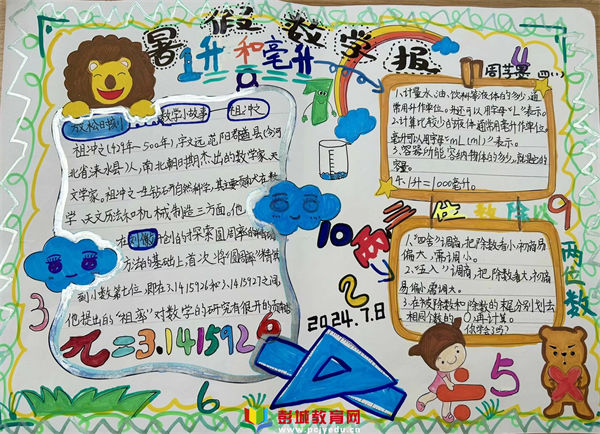 暑假数学报
1升和毫升
周芓
四(1)
放松时刻
数学小故事
祖冲之
祖冲之(429年—500年),字文远,范阳郡遒县(今河
北省涞水县)人,南北朝时期杰出的数学家、天
文学家。祖冲之一生钻研自然科学,其主要贡献在数
学、天文历法和机械制造三方面。他
在刘徽创的探索圆周率的精确
方法的基础上,首次将“圆周率”精算
到小数第七位,即在3.1415926和3.1415927之间,
他提出的“祖率”对数学的研究有很大的贡献
π=3.1415926
1.计量水、油、饮料等液体的多少,通
常用升作单位。升还可以用字母“L”表示。
2.计量比较少的液体,通常用毫升作单位。
毫升可以用字母“mL(ml)”表示。
3.容器所能容纳物体的多少,就是它的
容量。
4.1升=1000毫升。
三位数除以
两位数
1.“四舍”调商,把除数看小,初商易
偏大,需调小。
2.“五入”调商,把除数看大,初商
易偏小,需调大。
3.在被除数和除数的末尾分别划去
相同个数的0,再计算。
你学会了吗?
2024.7.8
4
9
10
2
3
6
5
1
彭城教育网
www.pcjyedu.cn